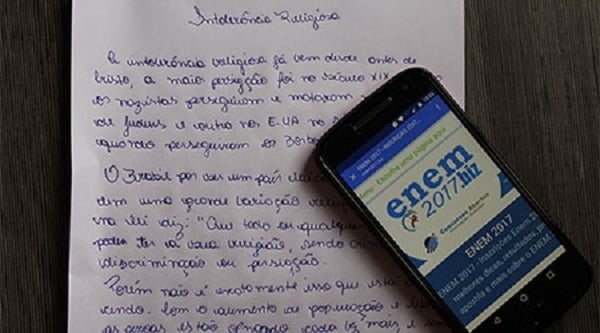 Intolerância Religiosa
A intolerância religiosa já vem desde antes de
cristo, a maio persegção foi no século XIX
os nazistas perseguiram e mataram
de judeus e outro nos E.UA no
quando perseguiram os
O Brasil por ser um país
tem uma grande variação
na lei diz: "Que todo ou qualquer
poder ter sua religião, sendo
discriminação ou persição.
Porém não é exatamente isso que está
rendo. Com o aumento da população e
as coisas estão ficando cada vez mais e
ENEM 2017 - INSCRIÇÃO, EDIT...
Menu : Escolha uma página aqui
enem
2017.biz
Concursos Abertos
ENEM 2017
ENEM 2017 - Inscrições Enem 2
melhores dicas, resultados,
apostila e mais sobre o ENEM